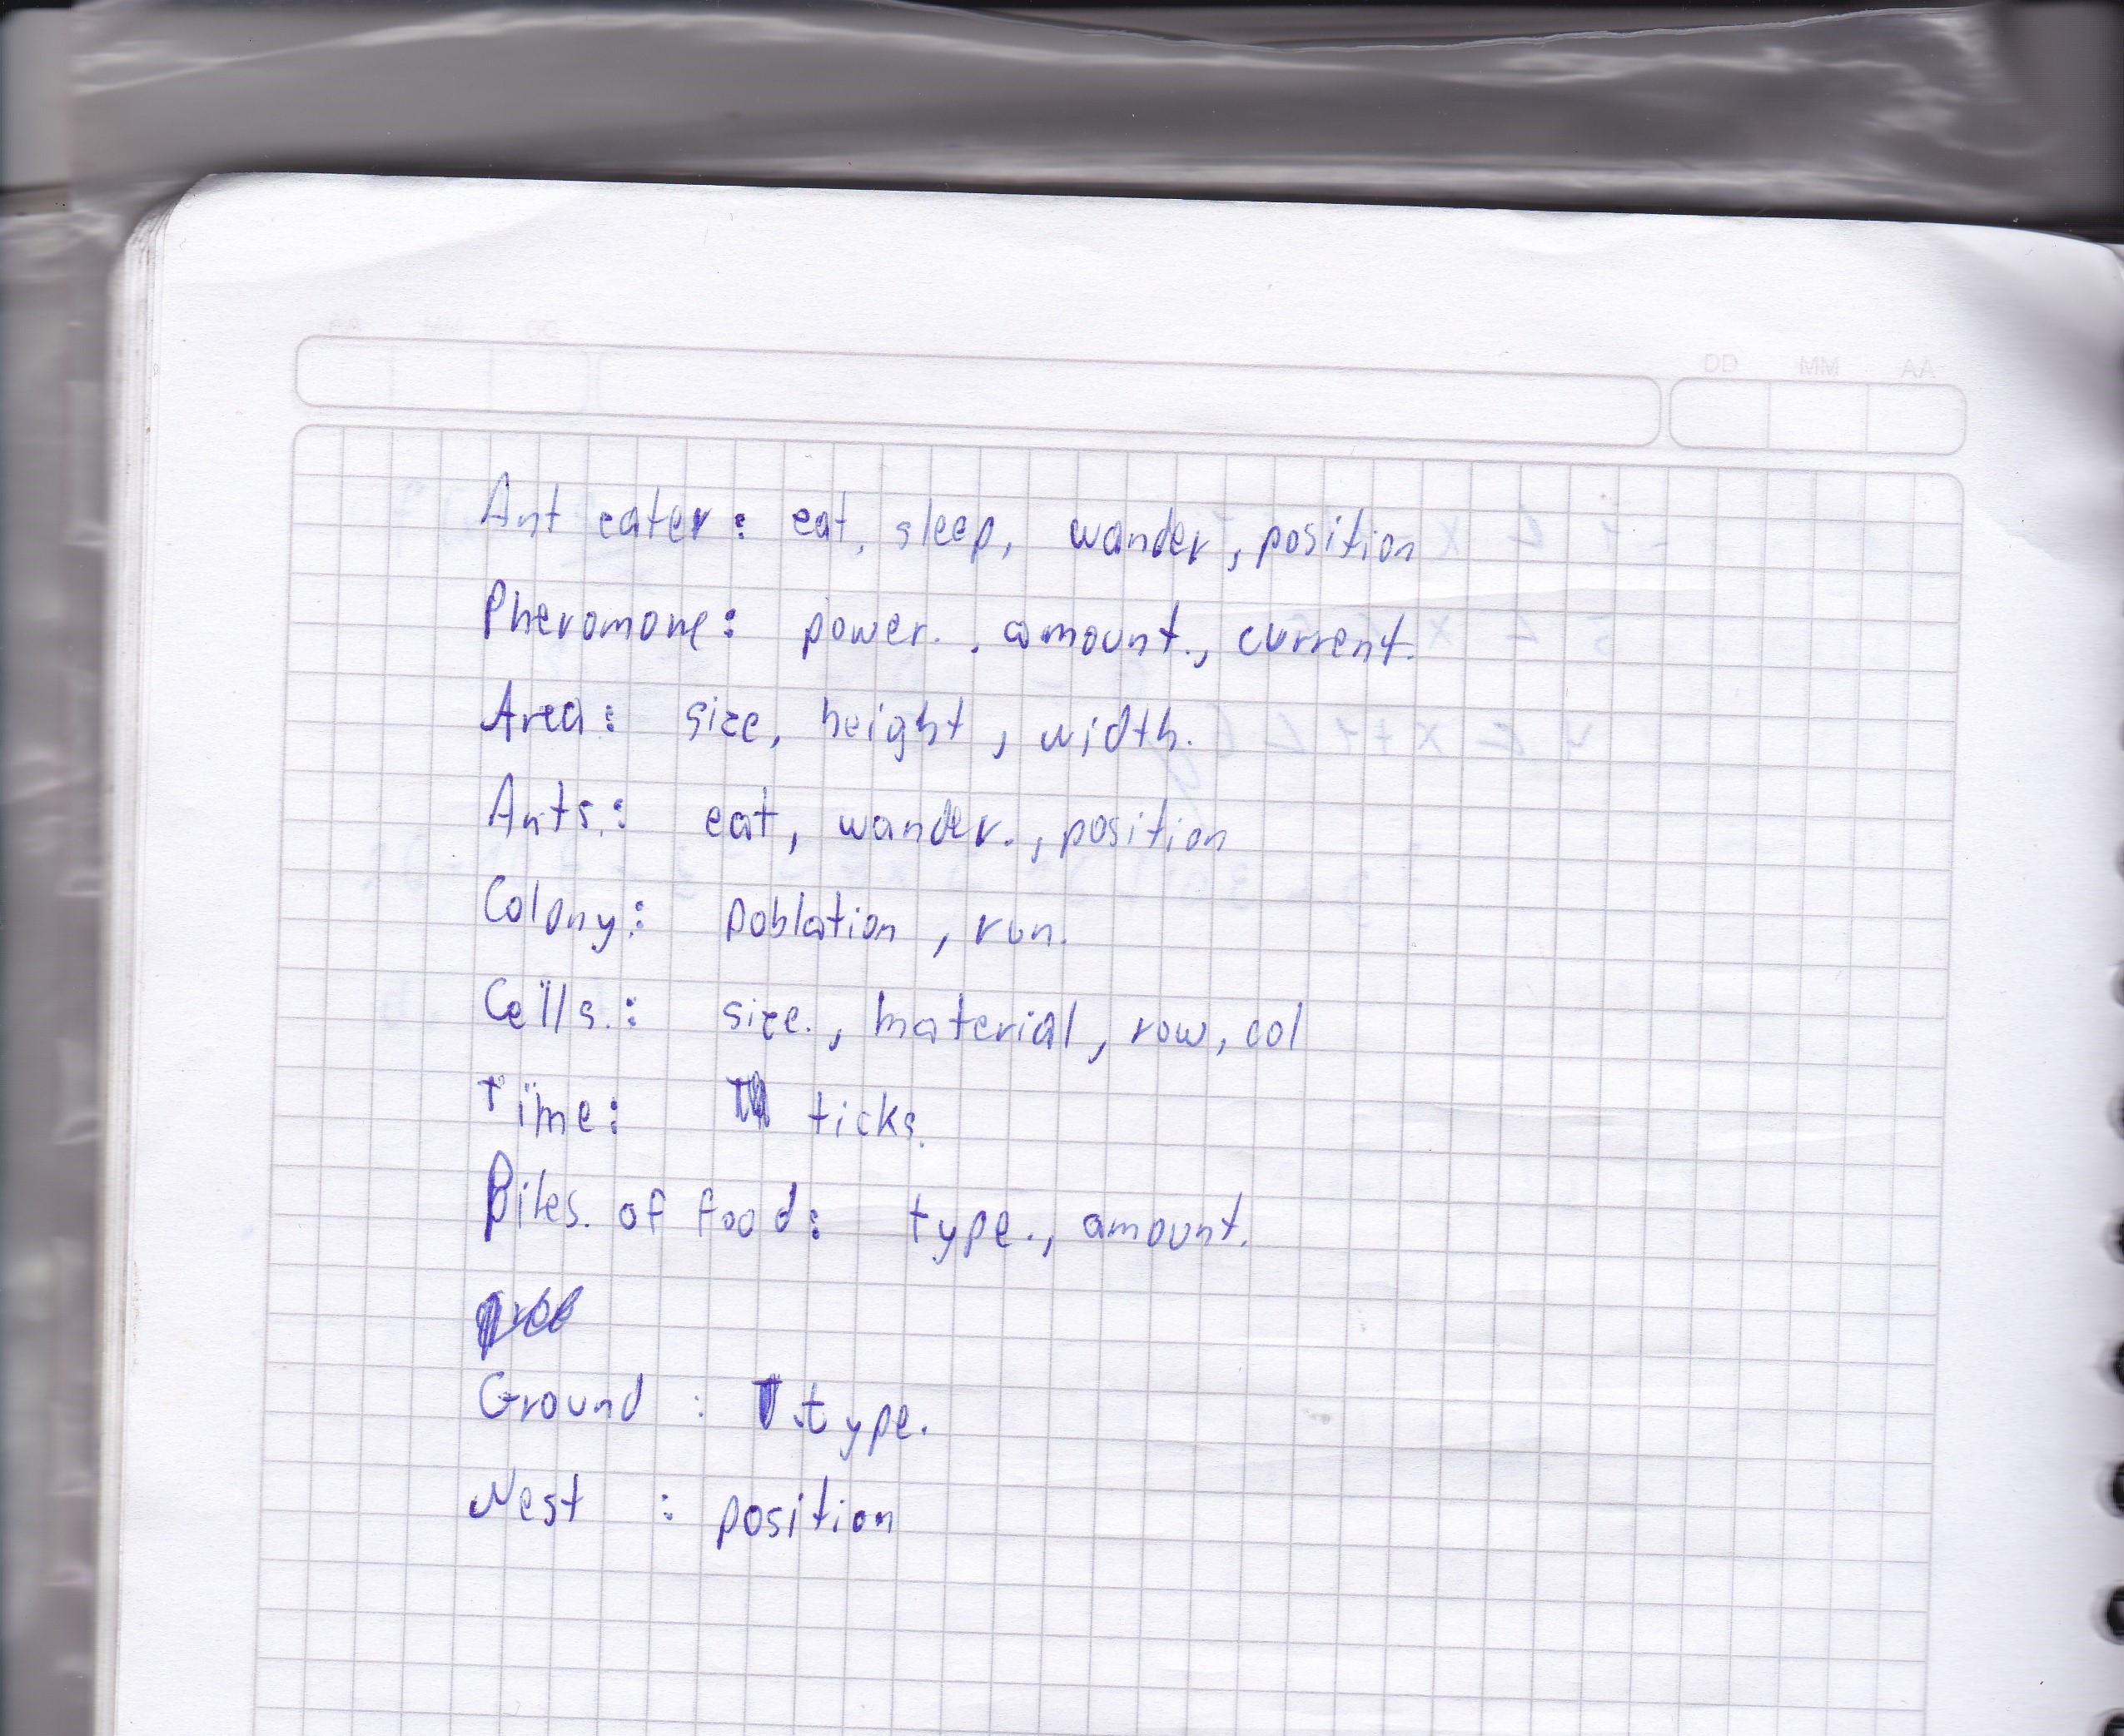 Ant eater: eat, sleep, wander, position
Pheromone: power., amount., current.
Area: size, height, width.
Ants.: eat, wander., position
Colony: poblation, run.
Cells.: size., material, row, col
Time: ticks.
Piles. of food: type., amount.
Ground : type.
Nest : position